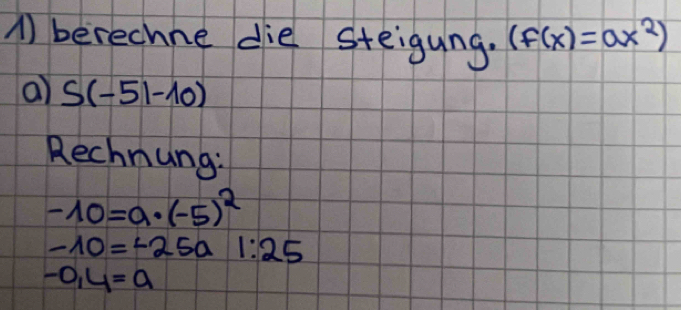 1) berechne die Steigung. (f(x)=ax²)
a) S(-5|-10)
Rechnung:
-10=a·(-5)²
-10=-25a |:25
-0,4=a